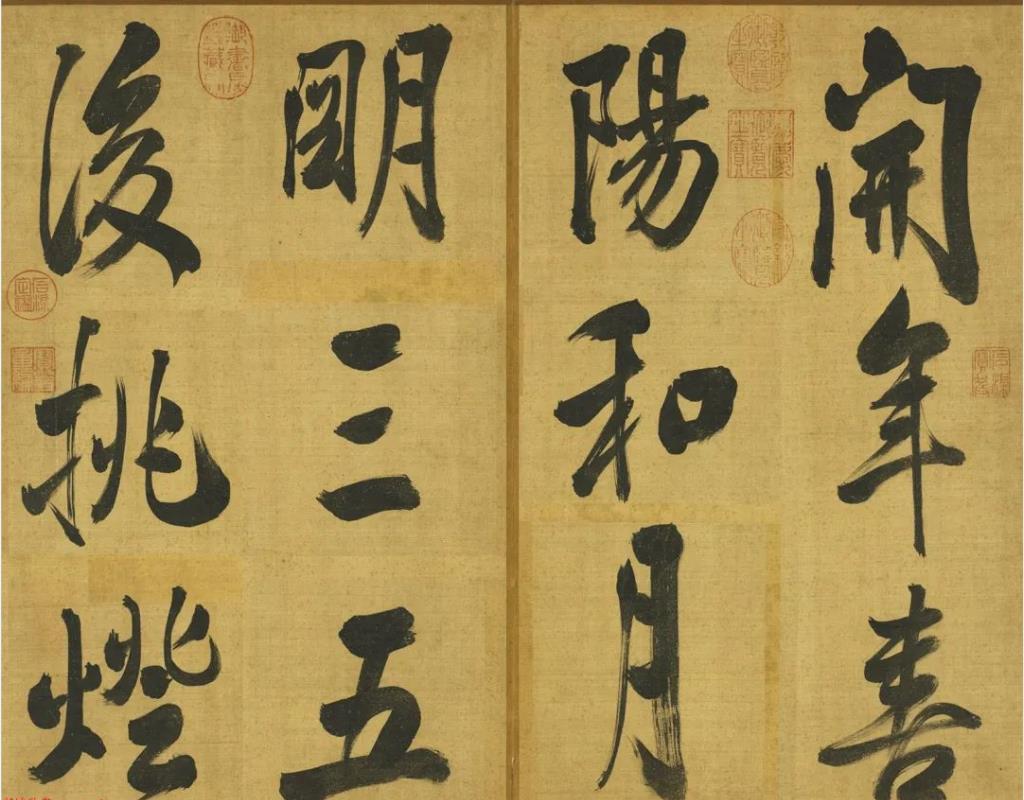 開年春
陽和月
朙三五
後挑燈